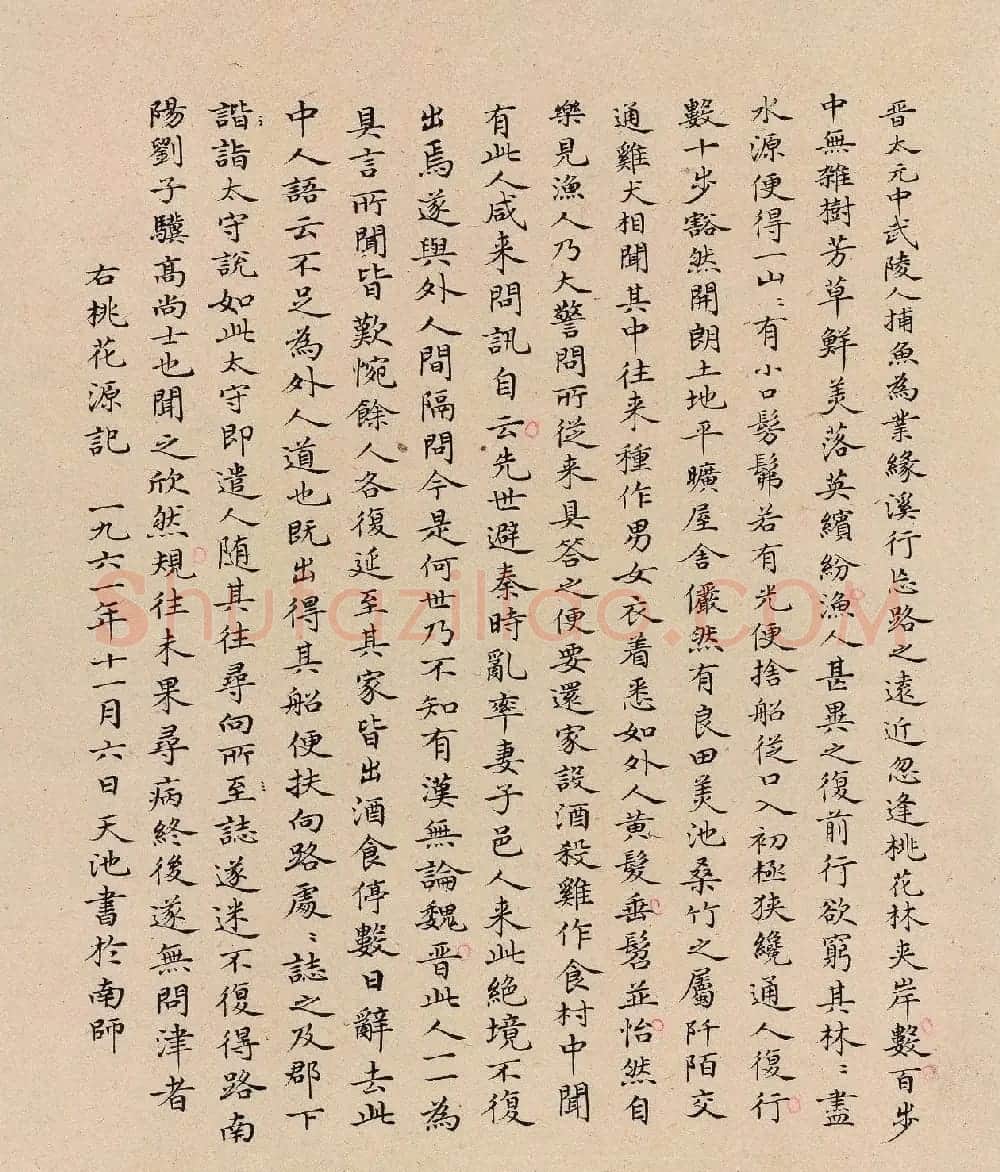 晉太元中武陵人捕魚為業緣溪行忘路之遠近忽逢桃花林夾岸數百步
中無雜樹芳草鮮美落英繽紛漁人甚異之復前行欲窮其林〻盡
水源便得一山〻有小口髣髴若有光便捨船從口入初極狹纔通人復行
數十步豁然開朗土地平曠屋舍儼然有良田美池桑竹之屬阡陌交
通雞犬相聞其中往来種作男女衣着悉如外人黄髮垂髫並怡然自
樂見漁人乃大驚問所從来具答之便要還家設酒殺雞作食村中聞
有此人咸来問訊自云先世避秦時亂率妻子邑人来此絕境不復
出焉遂與外人間隔問今是何世乃不知有漢無論魏晉此人一一為
具言所聞皆歎惋餘人各復延至其家皆出酒食停數日辭去此
中人語云不足為外人道也既出得其船便扶向路處〻誌之及郡下
詣詣太守說如此太守即遣人随其往尋向所至誌遂迷不復得路南
陽劉子驥髙尚士也聞之欣然規往未果尋病終後遂無問津者
右桃花源記 一九六一年十一月六日天池書於南師
shufaziliao.COM